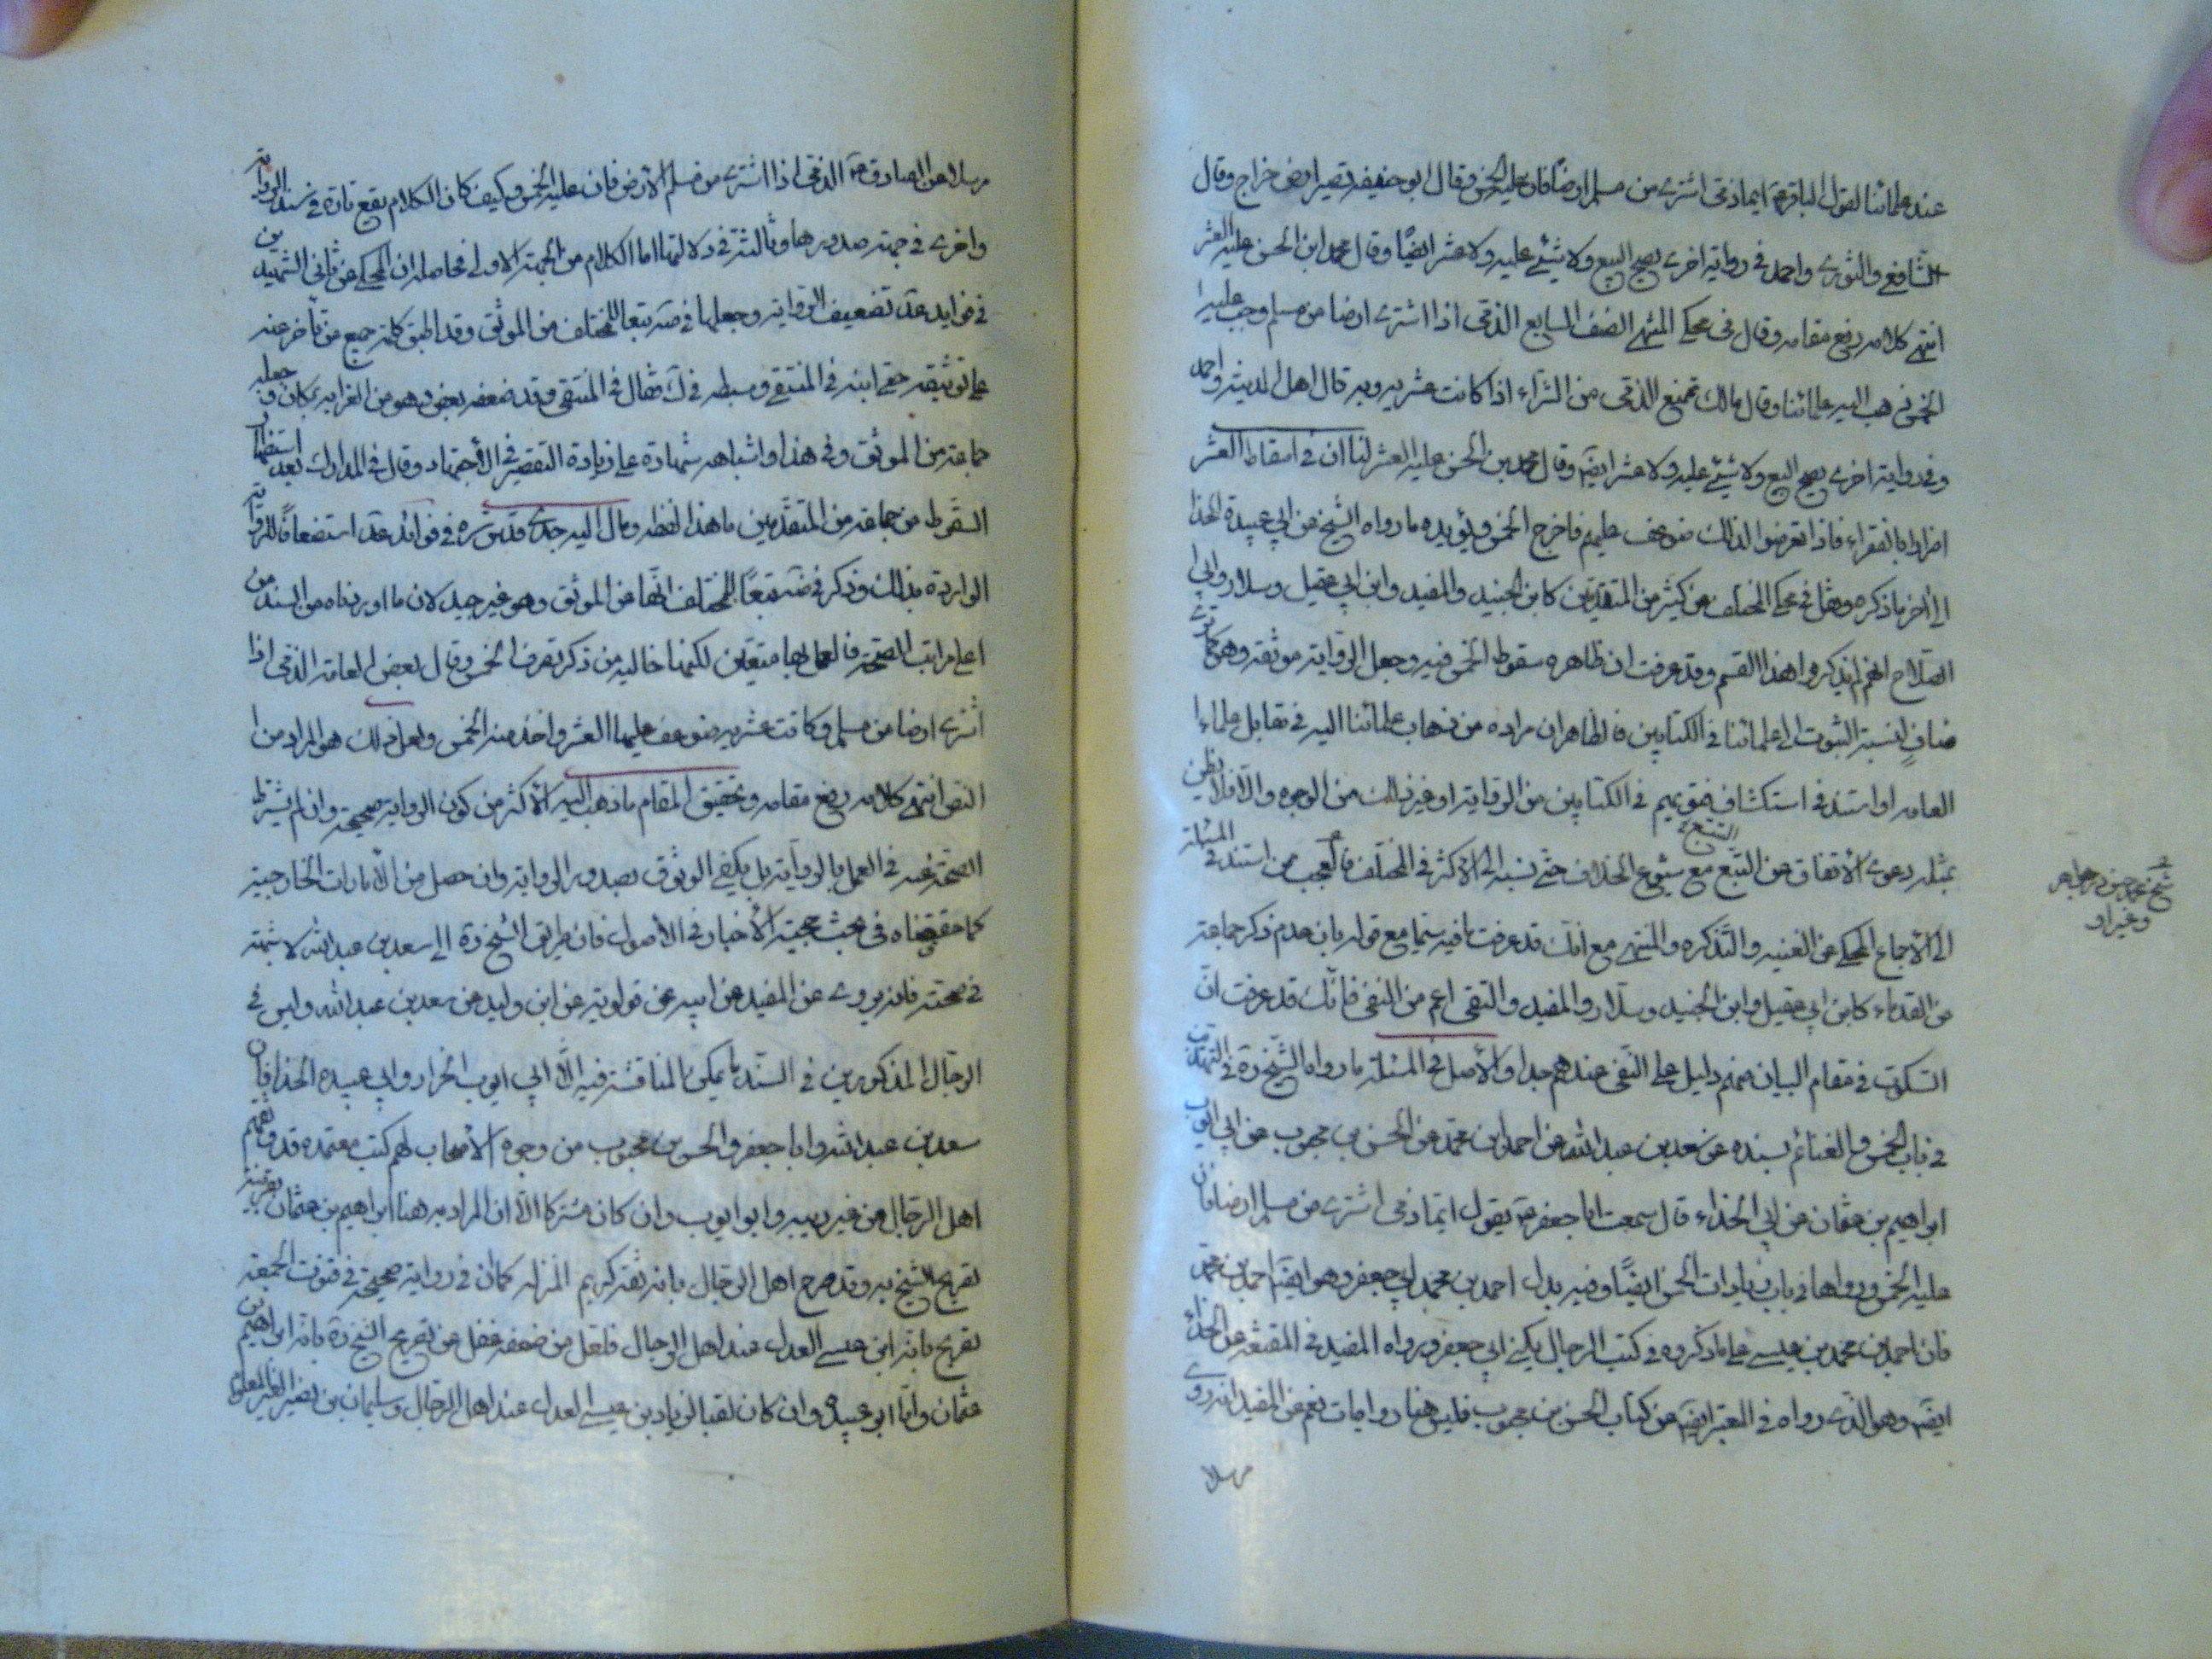 عند علمائنا لقول الباقر ع ايما ذمى اشترى من مسلم ارضًا فان عليه الخمس وقال ابو حنيفه تصير ارض خراج وقال
الشافعى والثورى واحمد فى رواية اخرى يصح البيع ولا شئ عليه ولا عشر ايضًا وقال محمد ابن الحسن عليه العشر
انتهى كلامه رفع مقامه وقال فى محكى المنتهى الصنف السابع الذمى اذا اشترى ارضا من مسلم وجب عليه
الخمس ذهب اليه علمائنا وقال مالك تمنع الذمى من الشراء اذا كانت عشريه وبه قال اهل المدينه واحمد
وفى رواية اخرى يصح البيع ولا شئ عليه ولا عشر ايضا وقال محمد بن الحسن عليه العشر لنا ان فى اسقاط العشر
اضرارا بالفقراء فاذا تعرضوا لذلك ضوعف عليهم فاخرج الخمس ويؤيده ما رواه الشيخ عن ابى عبيدة الحذا
الى اخر ما ذكره وهنا فى محكى المختلف عن كثير من المتقدمين كابن الجنيد والمفيد وابن ابى عقيل وسلار وابى
الصلاح انهم لم يذكروا هذا القسم وقد عرفت ان ظاهره سقوط الخمس فيه وجعل الرواية موثقه وهو كما ترى
مناف لنسبة الثبوت الى علمائنا فى الكتابين فالظاهر ان مراده من ذهاب علمائنا اليه فى مقابل علماء
العامه او استند فى استكشاف فتويهم فى الكتابين من الرواية او غير ذلك من الوجوه والا فلا يظن
التتبع
بمثله دعوى الاتفاق عن التتبع مع شيوع الخلاف حتى نسبه الى الاكثر فى المختلف فالعجب من استند فى المسئلة
الى الاجماع المحكى عن الغنيه والتذكره والمنتهى مع انك قد عرفت ما فيه سيما مع قوله بان عدم ذكر جماعة
من القدماء كابن ابى عقيل وابن الجنيد وسلار والمفيد والتقى اعم من النفى فانك قد عرفت ان
السكوت فى مقام البيان منهم دليل على النفى عندهم جدا والاصل فى المسئلة ما رواه الشيخ ره فى التهذيب
فى باب الخمس والغنائم بسنده عن سعد بن عبد الله عن احمد بن محمد عن الحسن بن محبوب عن ابى ايوب
ابراهيم بن عثمان عن ابى الحذاء قال سمعت ابا جعفر ع يقول ايما ذمى اشترى من مسلم ارضا فان
عليه الخمس ورواها فى باب زيادات الخمس ايضًا وفيه بدل احمد بن محمد ابى جعفر وهو ايضا احمد بن محمد
فان احمد بن محمد بن عيسى على ما ذكروه فى كتب الرجال يكنى ابى جعفر ورواه المفيد فى المقنعه عن الحذاء
ايضا وهو الذى رواه فى المعتبر ايضا من كتاب الحسن بن محبوب فليس هنا روايات نعم عن المفيد انه روى
مرسلا
شيخ محمد حسن در جواهر
وغير او
مرسلا عن الصادق ع الذمى اذا اشترى من مسلم الارض فان عليه الخمس وكيف كان الكلام يقع تارة فى سند الرواية
واخرى فى جهة صدورها وثالثة فى دلالتها اما الكلام من الجهة الاولى فحاصله ان المحكى عن ثانى الشهيدين
فى فوايد عد تضعيف الرواية وجعلها فى ضه تبعا للمختلف من الموثق وقد اطبق كلمة جميع من تاخر عنه
على توثيقه حتى ابنه فى المنتقى وسبطه فى ك فقال فى المنتقى وقد ضعفه بعض وهو من الغرابه بمكان وجعله
جماعة من الموثق وفى هذا واشباهه شهادة على زيادة التقصير فى الاجتهاد وقال فى المدارك بعد استظهار
السقوط من جماعة من المتقدمين ما هذا لفظه ومال اليه جدى قدس سره فى فوائد عد استضعافًا للرواية
الواردة بذلك وذكر فى ضه تبعًا للمختلف انها من الموثق وهو غير جيد لان ما اوردناه من السند من
اعلى مراتب الصحة فالعمل بها متعين لكنها خاليه من ذكر مصرف الخمس وقال بعض العامه الذمى اذا
اشترى ارضا من مسلم وكانت عشريه ضوعف عليها العشر واخذ منه الخمس ولعل ذلك هو المراد من
النص انتهى كلامه رفع مقامه وتحقيق المقام ما ذهب اليه الاكثر من كون الرواية صحيحة وان لم يشترط
الصحة عند فى العمل بالرواية بل يكفى الوثوق بصدور الرواية وان حصل من الامارات الخارجية
كما حققناه فى بحث حجية الاخبار فى الاصول فان طريق الشيخ ره الى سعد بن عبد الله لا شبهة
فى صحته فانه يروى عن المفيد عن ابيه عن قولويه عن ابن وليد عن سعد بن عبد الله وليس فى
الرجال المذكورين فى السند ما يمكن المناقشة فيه الا ابى ايوب الخزاز وابى عبيده الحذا فان
سعد بن عبد الله وابا جعفر والحسن بن محبوب من وجوه الاصحاب لهم كتب معتمده قد وثقهم
اهل الرجال من غير ريبه وابو ايوب وان كان مشتركا الا ان المراد به هنا ابراهيم بن عثمان بقرينة
تصريح الشيخ به وقد صرح اهل الرجال بانه ثقه كريم المنزله كما ان فى رواية صحيحة فى قنوت الجمعة
تصريح بانه ابن عيسى العدل عند اهل الرجال فلعل من ضعفه غفل عن تصريح الشيخ ره بانه ابراهيم بن
عثمان واما ابو عبيده وان كان لقبا لزياد بن عيسى العدل عند اهل الرجال وسليمان بن نصير الغير المعلوم